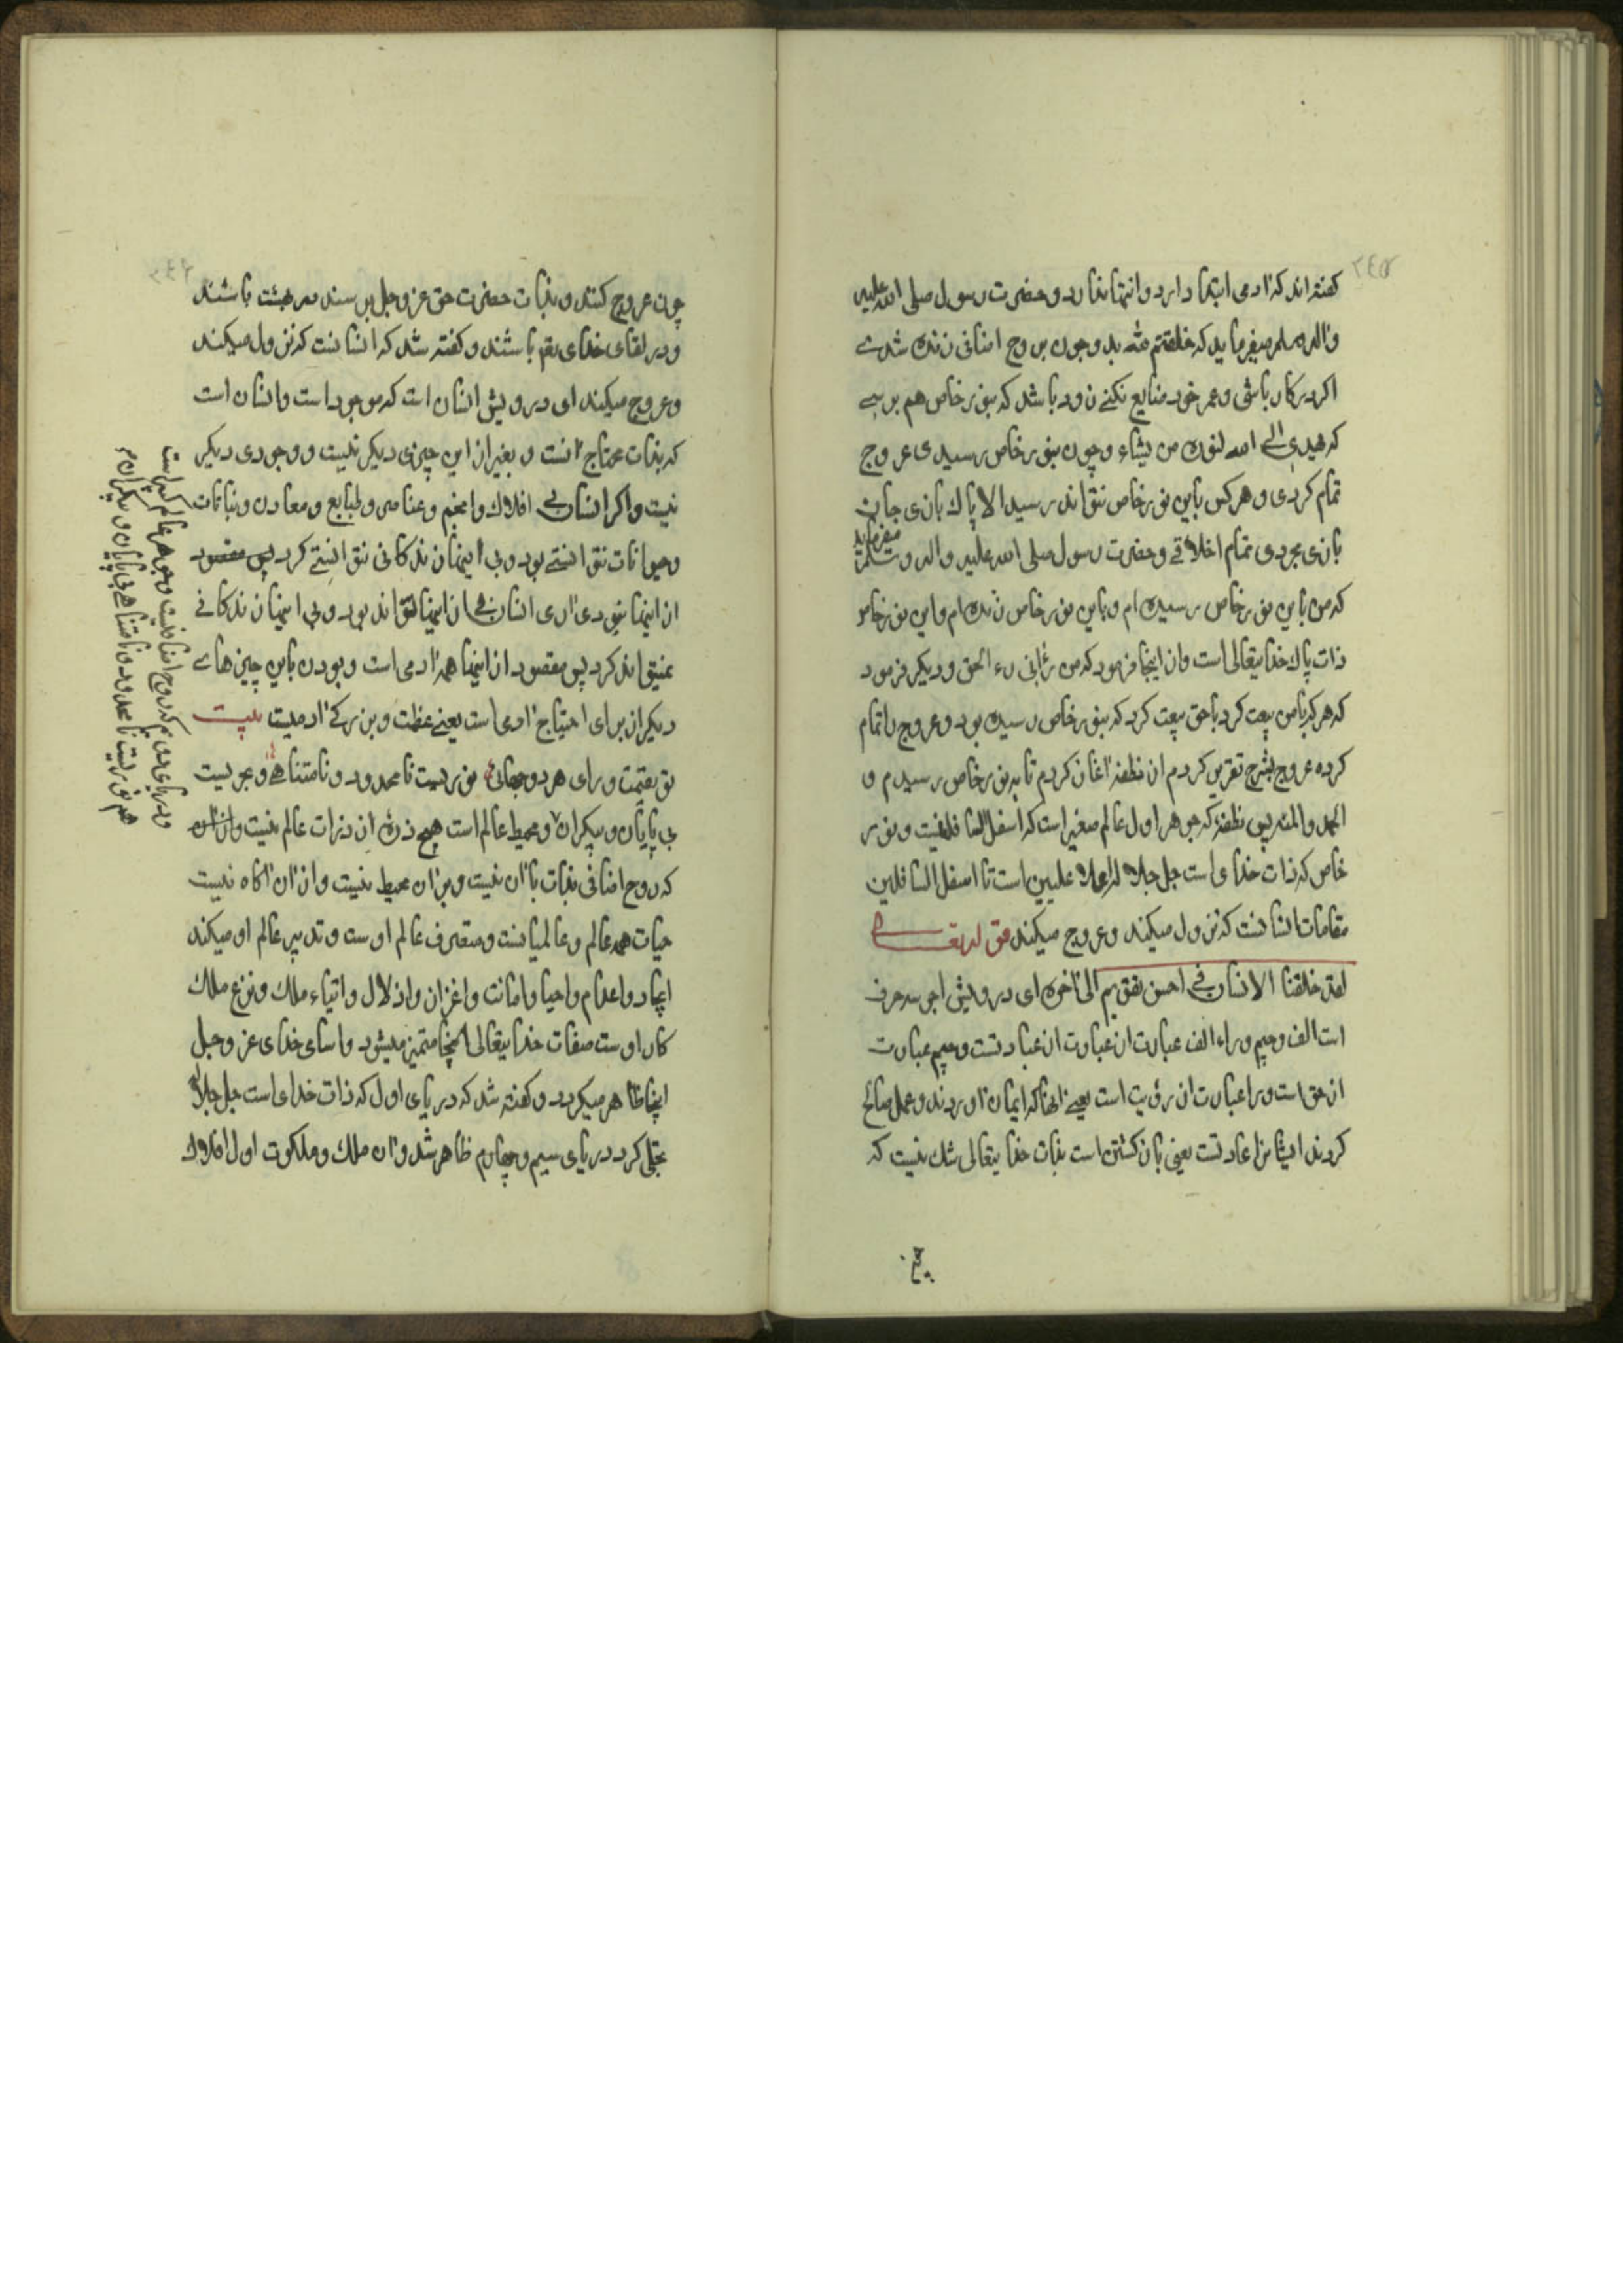 ٢٤٥
گفته‌اند که آدمی ابتدا دارد و انتها ندارد و حضرت رسول صلی الله علیه
و آله و سلم میفرماید که خلقتم بد و چون بروح اضافی زنده شدی
اگر در کار باشی و عمر خود ضایع نکنی زود باشد که بنور خاص هم برسی
که یهدی الله لنوره من یشاء و چون بنور خاص رسیدی عروج
تمام کردی و هر کس باین نور خاص نتواند رسید الا پاک بازی جان
بازی مجردی تمام اخلاقی و حضرت رسول صلی الله علیه و آله و سلم میفرماید
که من باین نور خاص رسیده‌ام و باین نور خاص زنده‌ام و این نور خاص
ذات پاک خدایتعالی است و از اینجا فرمود که من رآنی رء الحق و دیگر فرمود
که هر که با من بیعت کرد با حق بیعت کرد که بنور خاص رسیده بود و عروج را تمام
کرده عروج بشرح تقریر کردم از نطفه آغاز کردم تا به نور خاص رسیدم و
الحمد و المنه پس نطفه که جوهر اول عالم صغیر است که اسفل السافلینست و نور
خاص که ذات خدای است جل جلاله اعلا علیین است تا اسفل السافلین
مقامات انسانست که نزول میکند و عروج میکند قوله تعالی
لقد خلقنا الانسان فی احسن تقویم الی آخره ای درویش اجر سه حرف
است الف و جیم و راء الف عبارت از عبادتست و جیم عبارت
از حق است و را عبارت از رؤیت است یعنی آنها که ایمان آوردند و عمل صالح
کردند ایشانرا عادتست یعنی باز گشتن است بذات خدایتعالی شک نیست که
چون
٢٤٦
چون عروج کنند و بذات حضرت حق عز و جل برسند در بهشت باشند
و در لقای خدای باشند و گفته شد که انسانست که نزول میکند
و عروج میکند ای درویش انسان است که موجود است و انسان است
که بذات محتاج آنست و بغیر از این چیزی دیگر نیست و وجودی دیگر
نیست و اگر انسان بی افلاک و انجم و عناصر و طبایع و معادن و نباتات
و حیوانات توانستی بود و بی اینها زندگانی توانستی کرد پس مقصود
از اینها نبودی آری انسان بی از اینها نتواند بود و بی اینها زندگانی
نمیتواند کرد پس مقصود از اینها همه آدمی است و بودن باین چیزهای
دیگر از برای احتیاج آدمی است یعنی عظمت و بزرگی آدمیت
ورای هر دو جهانی نوریست نامحدود و نامتناهی و بحریست
بی پایان و بیکران و محیط عالم است هیچ ذره از ذرات عالم نیست
که روح اضافی بذات با آن نیست و بر آن محیط نیست و از آن آگاه نیست
حیات همه عالم و عالمیانست و متصرف عالم اوست و تدبیر عالم او میکند
ایجاد و اعدام و احیا و اماتت و اعزاز و اذلال و ایتاء ملک و نزع ملک
کار اوست صفات خدایتعالی اینجا متمیز میشود و اسمای خدای عز و جل
اینجا ظاهر میگردد و گفته شد که دریای اول که ذات خدای است جل جلاله
تجلی کرد دریای سیم و چهارم ظاهر شد و آن ملک و ملکوت اول افلاک
و دریای دوم که روح اضافیست و جوهر عالم کبیر است
هم نوریست نامحدود و نامتناهی بی پایان و بیکران